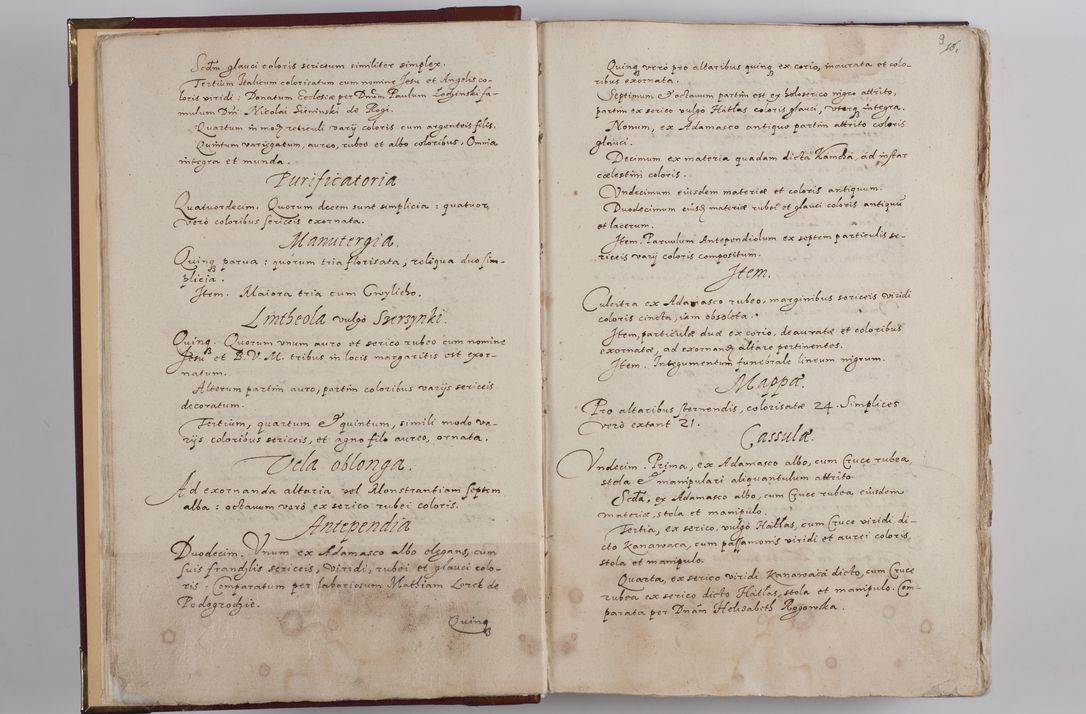 Scdm glauci coloris sericeum similiter simplex.
Tertium Italicum coloricatum cum nomine Jesu et Angelis co-
loris viridi: Donatum Ecclesiæ per Dnum Paulum Lodzinski fa-
mulum Dni Nicolai Sieninski de Rogi.
Quartum in modũ reticuli varij coloris cum argenteis filis.
Quintum variegatum, aureo, rubeo et albo coloribus. Omnia
integra et munda.
Purificatoria
Quatuordecim. Quorum decem sunt simplicia: quatuor
verò coloribus sericeis exornata.
Manutergia.
Quinq parua: quorum tria florisata, reliqua duo sim-
plicia.
Item. Maiora tria cum Cwylicho.
Lintheola vulgò Szerzynki.
Quinq. Quorum vnum auro et serico rubeo cum nomine
Jesu et B. V. M. tribus in locis margaritis est exor-
natum.
Alterum partim auro, partim coloribus varijs sericeis
decoratum.
Tertium, quartum & quintum, simili modo va-
rijs coloribus sericeis, et agno filo aureo, ornata.
Vela oblonga.
Ad exornanda altaria vel Monstrantiam septem
alba: octauum verò ex serico rubei coloris.
Antependia
Duodecim. Vnum ex Adamasco albo elegans, cum
suis frandzlis sericeis, viridi, rubei et glauci colo-
ris. Comparatum per laboriosum Mathiam Lorck de
Podogrodzie.
Quinq
9
Quinq verò pro altaribus quinq ex corio, inaurata et colo-
ribus exornata.
Septimum et octauum partim est ex holoserico nigro attrito,
partim ex serico vulgò Hatlas coloris glauci, vtrq integra.
Nonum, ex Adamasco antiquo partim attrito coloris
glauci.
Decimum ex materia quadam dicta Kamcha, ad instar
cælestim coloris.
Vndecimum eiusdem materiæ et coloris antiquum.
Duodecimum eiusd materiæ rubei et glauci coloris antiquũ
et lacerum.
Item. Paruulum Antependiolum ex septem particulis se-
riceis varij coloris compositum.
Item.
Culcitra ex Adamasco rubeo, marginibus sericeis viridi
coloris cincta, iam obsoleta.
Item, particulæ duæ ex corio, deauratæ et coloribus
exornatæ, ad exornand altare pertinentes.
Item. Integumentum funebrale lineum nigrum.
Mappæ.
Pro altaribus sternendis, colorisatæ 24. Simplices
verò extant 21.
Cassulæ.
Vndecim. Prima, ex Adamasco albo, cum Cruce rubea,
stola & manipulari aliquantulum attrito.
Scda, ex Adamasco albo, cum Cruce rubea eiusdem
materiæ, stola et manipulo.
Tertia, ex serico, vulgò Hatlas, cum Cruce viridi, di-
cto Kanawaca, cum passamonis viridi et aurei coloris,
stola et manipulo.
Quarta, ex serico viridi Kanawaca dicto, cum Cruce
rubea ex serico dicto Hatlas, stola et manipulo. Com-
parata per Dnam Helisabeth Rogowska.